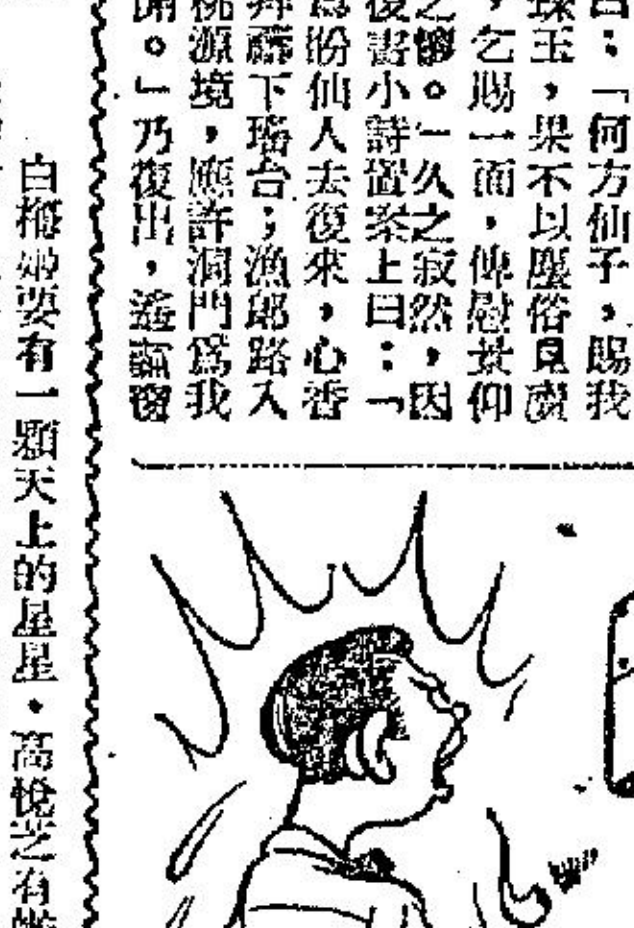 曰：「何方仙子，賜我
珠玉，果不以塵俗見棄
，乞賜一面，俾慰景仰
之懷。」久之寂然，因
復書小詩置案上曰：「
為盼仙人去復來，心香
拜禱下瑤台；漁郎路入
桃源境，應許洞門爲我
開。」乃復出，遙窺窗
白梅姬要有一顆天上的星星，高悅芝有